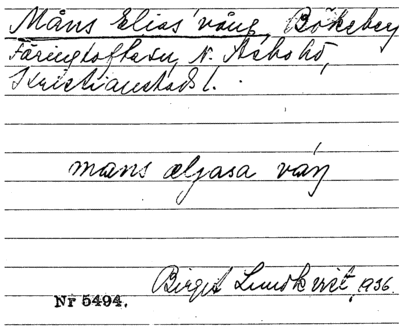 Måns Elias' vång, Bökeberg
Färingtofta sn, N. Åsbo hd,
Kristianstads l.
mans eljasa våŋ
Birgit Lundkvist, 1936.
Nr 5494.